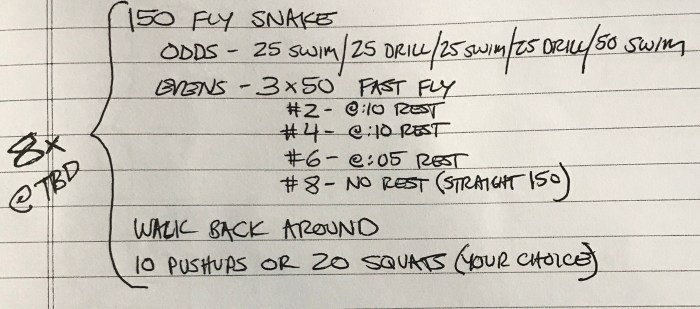 150 FLY SNAKE
ODDS - 25 SWIM/25 DRILL/25 SWIM/25 DRILL/50 SWIM
EVENS - 3x50 FAST FLY
#2 - @:10 REST
#4 - @:10 REST
8x
@TBD
#6 - @:05 REST
#8 - NO REST (STRAIGHT 150)
WALK BACK AROUND
10 PUSHUPS OR 20 SQUATS (YOUR CHOICE)